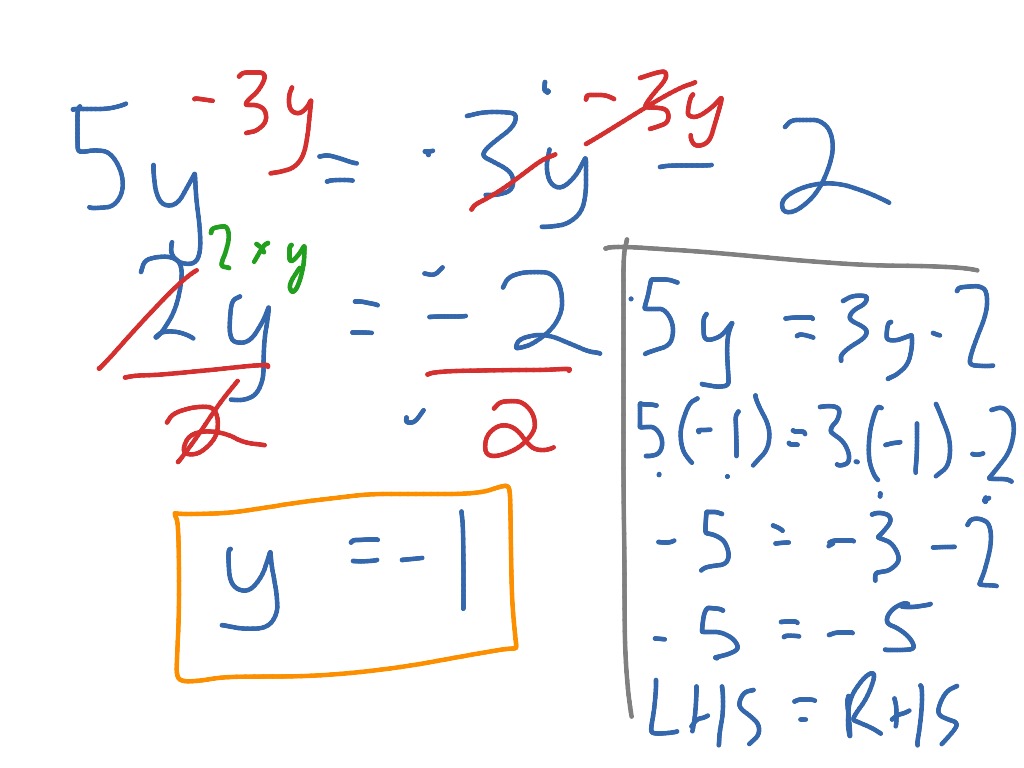 5y - 3y = - 3y - 3y - 2
2 × y
2y = - 2
2 2
y = - 1
5y = 3y - 2
5(-1) = 3.(-1) - 2
- 5 = - 3 - 2
- 5 = - 5
LHS = RHS